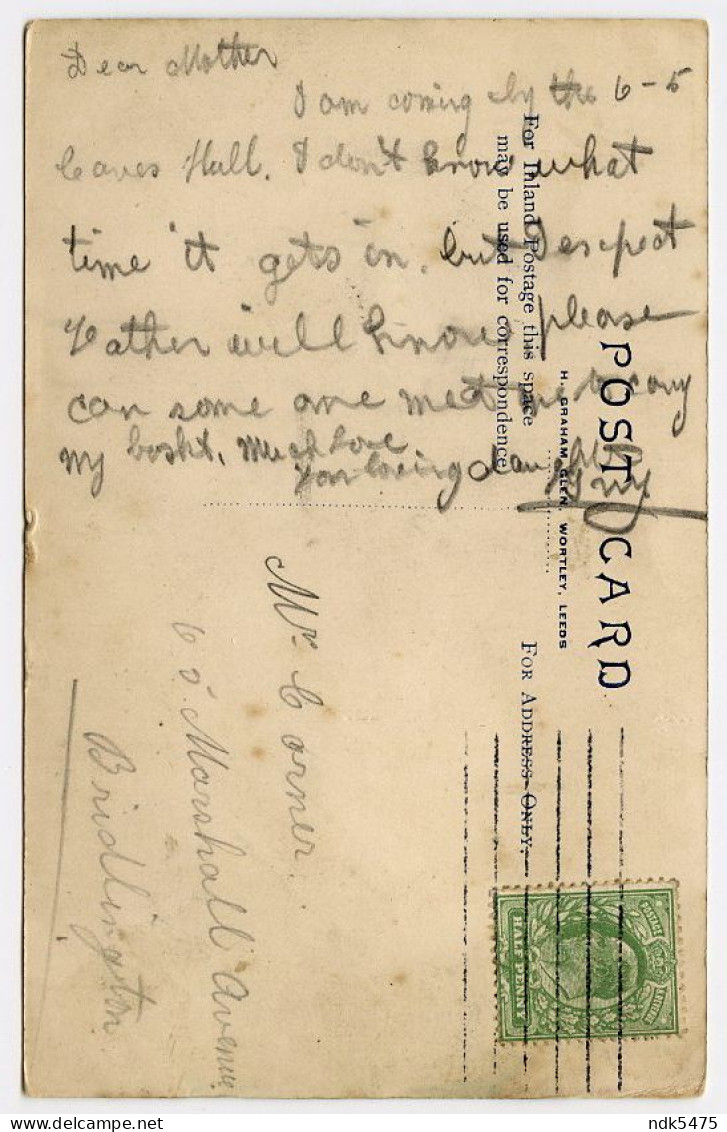 Dear Mother
I am coming by the 6-5
leaves Hull. I don't know what
time it gets in. but I expect
Father will know please
can some one meet me to carry
my baskt. Much love
Your loving daughter
POST CARD
H. GRAHAM GLEN, WORTLEY, LEEDS
For Inland Postage this space
may be used for correspondence
FOR ADDRESS ONLY.
Mr Corner.
Marshall Avenue
Bridlington.
POSTAGE
REVENUE
HALF PENNY
ndk5475